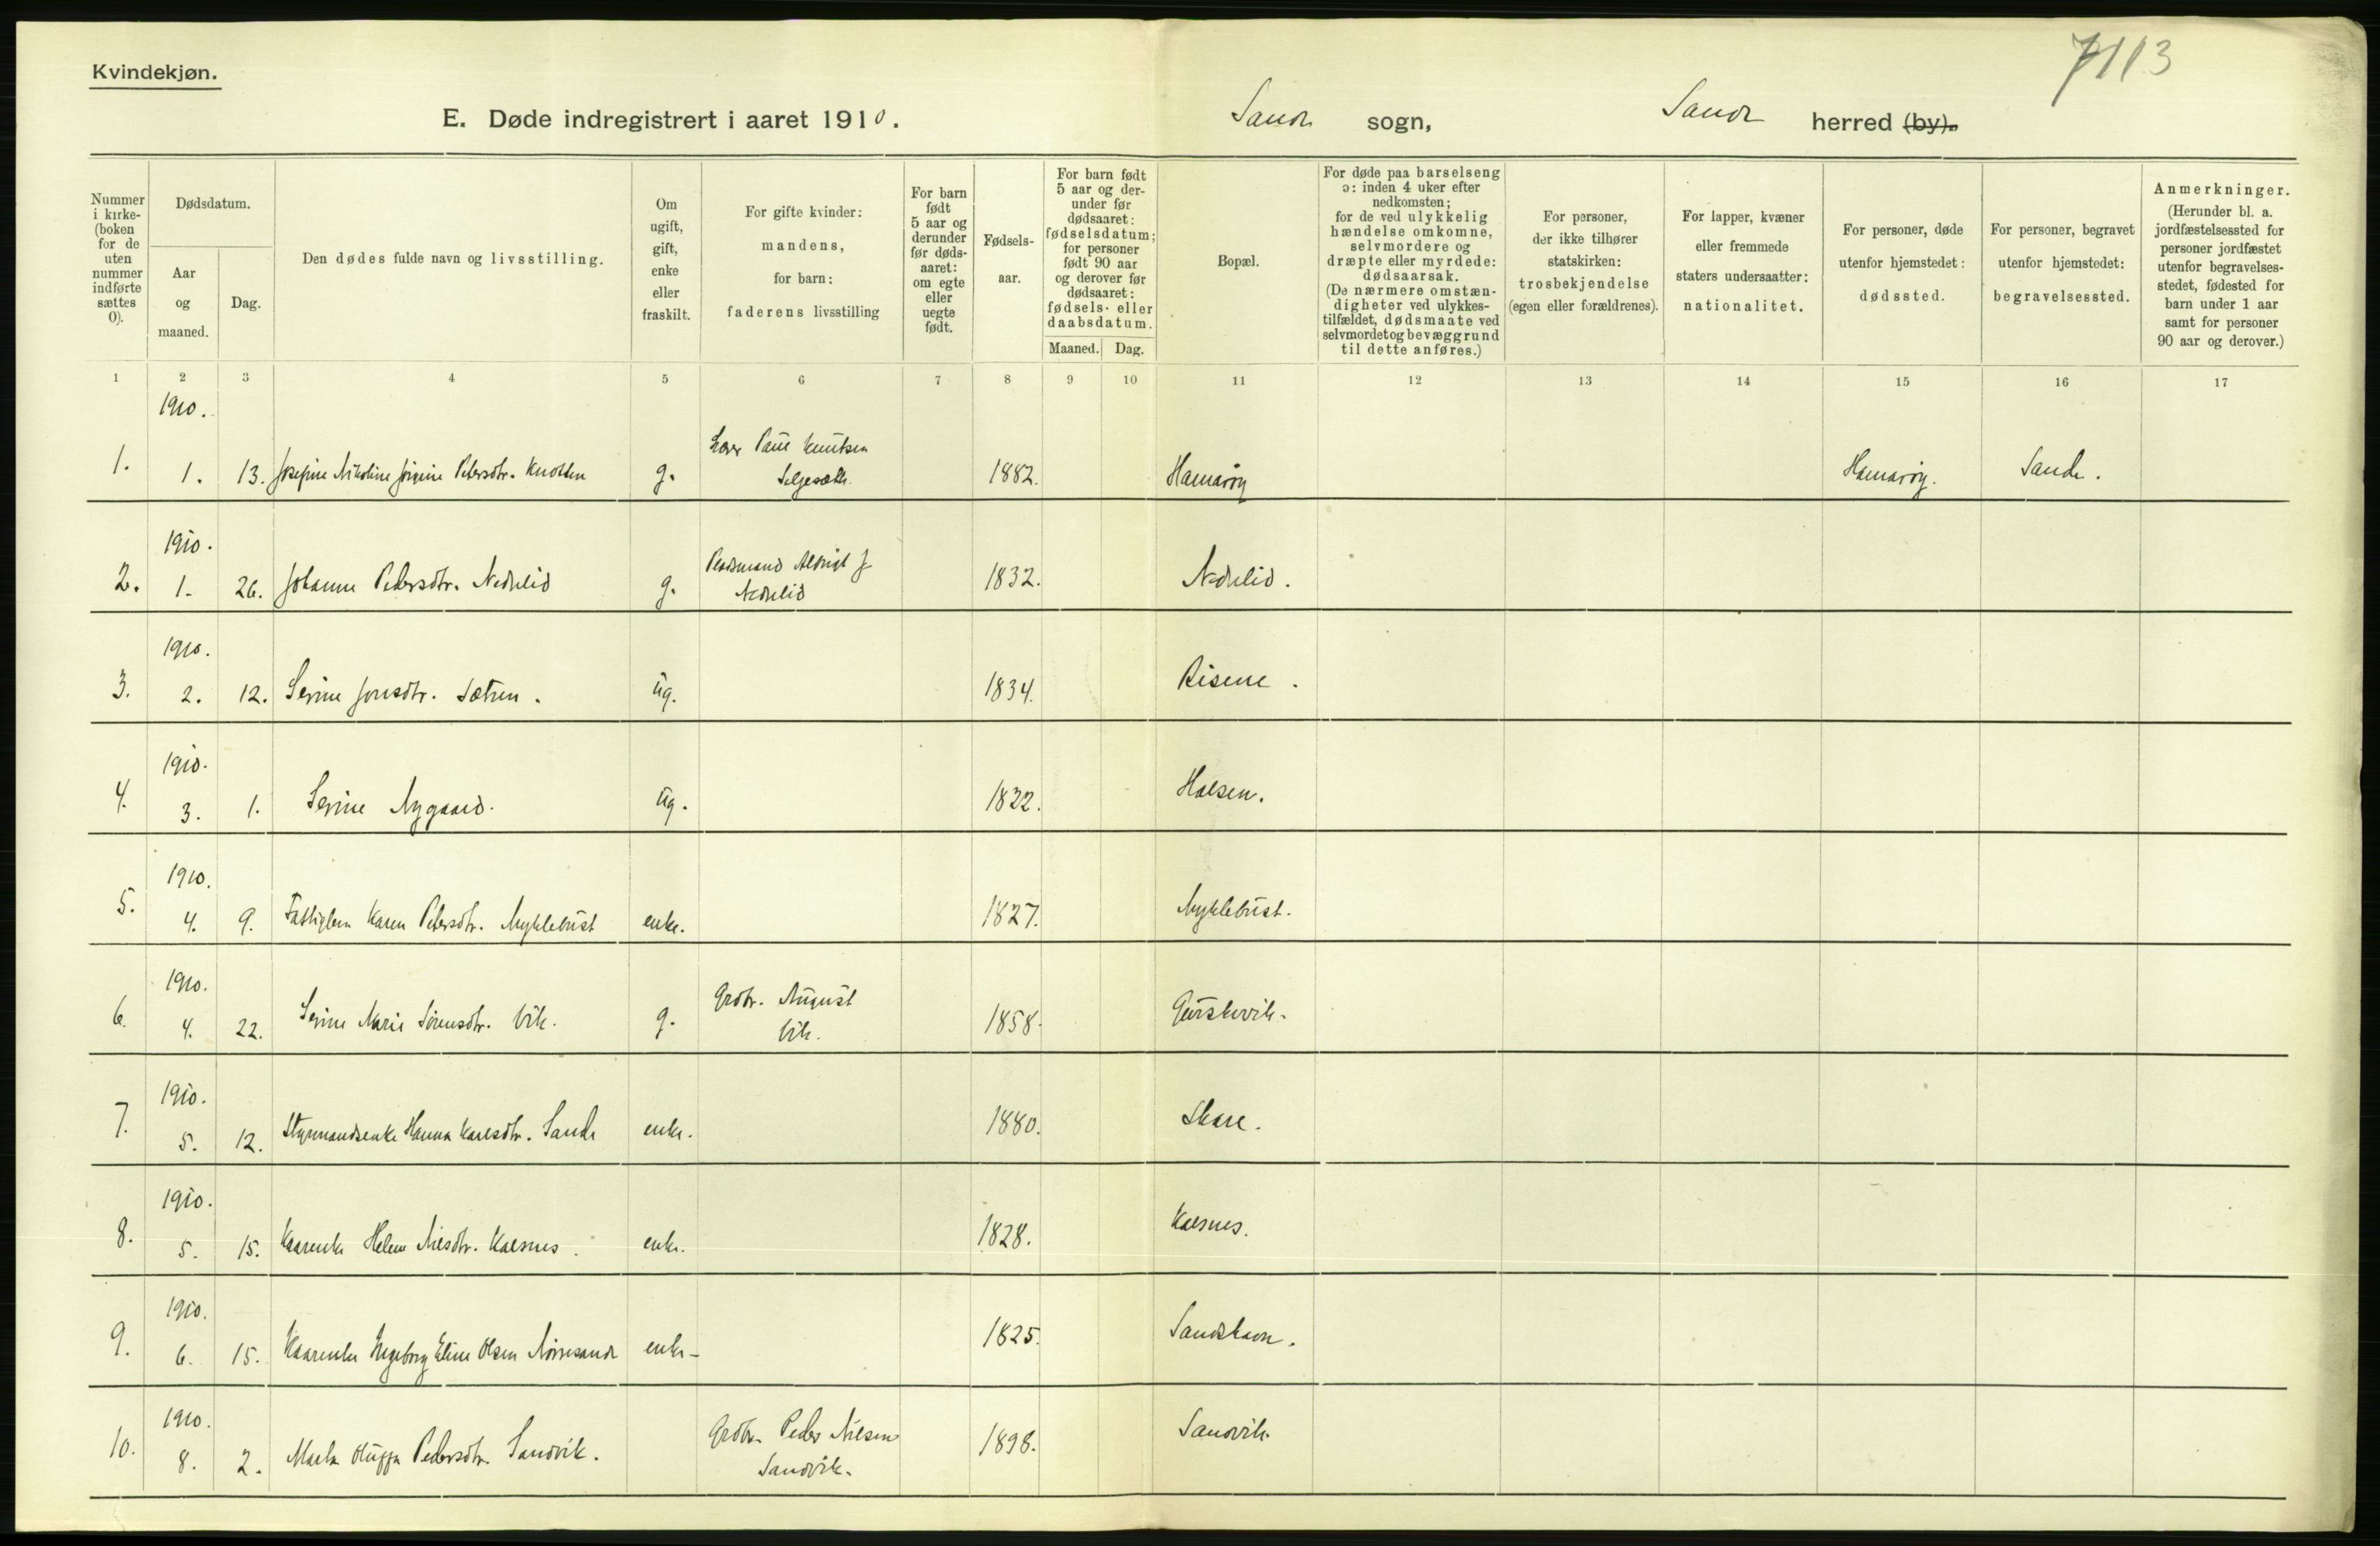 Kvindekjøn.
7113
E. Døde indregistrert i aaret 1910.
Sande sogn,
Sande herred (by).
Nummer i kirke- (boken for de uten nummer indførte sættes 0).
Dødsdatum.
Aar og maaned.
Dag.
Den dødes fulde navn og livsstilling.
Om ugift, gift, enke eller fraskilt.
For gifte kvinder: mandens, for barn: faderens livsstilling
For barn født 5 aar og derunder før døds- aaret: om egte eller uegte født.
Fødsels- aar.
For barn født 5 aar og der- under før dødsaaret: fødselsdatum; for personer født 90 aar og derover før dødsaaret: fødsels- eller daabsdatum.
Maaned.
Dag.
Bopæl.
For døde paa barselseng ɔ: inden 4 uker efter nedkomsten; for de ved ulykkelig hændelse omkomne, selvmordere og dræpte eller myrdede: dødsaarsak. (De nærmere omstæn- digheter ved ulykkes- tilfældet, dødsmaate ved selvmordet og bevæggrund til dette anføres.)
For personer, der ikke tilhører statskirken: trosbekjendelse (egen eller forældrenes).
For lapper, kvæner eller fremmede staters undersaatter: nationalitet.
For personer, døde utenfor hjemstedet: dødssted.
For personer, begravet utenfor hjemstedet: begravelsessted.
Anmerkninger. (Herunder bl. a. jordfæstelsessted for personer jordfæstet utenfor begravelses- stedet, fødested for barn under 1 aar samt for personer 90 aar og derover.)
1 2 3 4 5 6 7 8 9 10 11 12 13 14 15 16 17
1910.
1. 1. 13. Josefine Nikoline Jørgine Petersdtr. Knotten g. Paul Knutsen 1882. Hamarøy Hamarøy. Sande.
1910.
2. 1. 26. Johanne Pedersdtr. Nedrelid g. Pladsmand Aldrigt J. Nedrelid 1832. Nedrelid.
1910.
3. 2. 12. Serine Jonsdtr. Sætren. ug. 1834. Risene.
1910.
4. 3. 1. Serine Nygaard. ug. 1822. Halsen.
1910.
5. 4. 9. Fattiglem Karen Pedersdtr. Myklebust enke. 1827. Myklebust.
1910.
6. 4. 22. Serine Marie Sørensdtr. Vik. g. Grdbr. August Vik. 1858. Gurskevik.
1910.
7. 5. 12. Styrmandsenke Hanna Karlsdtr. Sande enke. 1880. Skare.
1910.
8. 5. 15. Kaarenke Helene Nilsdtr. Kalsnes. enke. 1828. Kalsnes.
1910.
9. 6. 15. Kaarenke Ingeborg Eline Olsen Nørresande enke- 1825. Sandshavn.
1910.
10. 8. 2. Marta Pedersdtr. Sandvik. Grdbr. Peder Nilsen Sandvik. 1898. Sandvik.